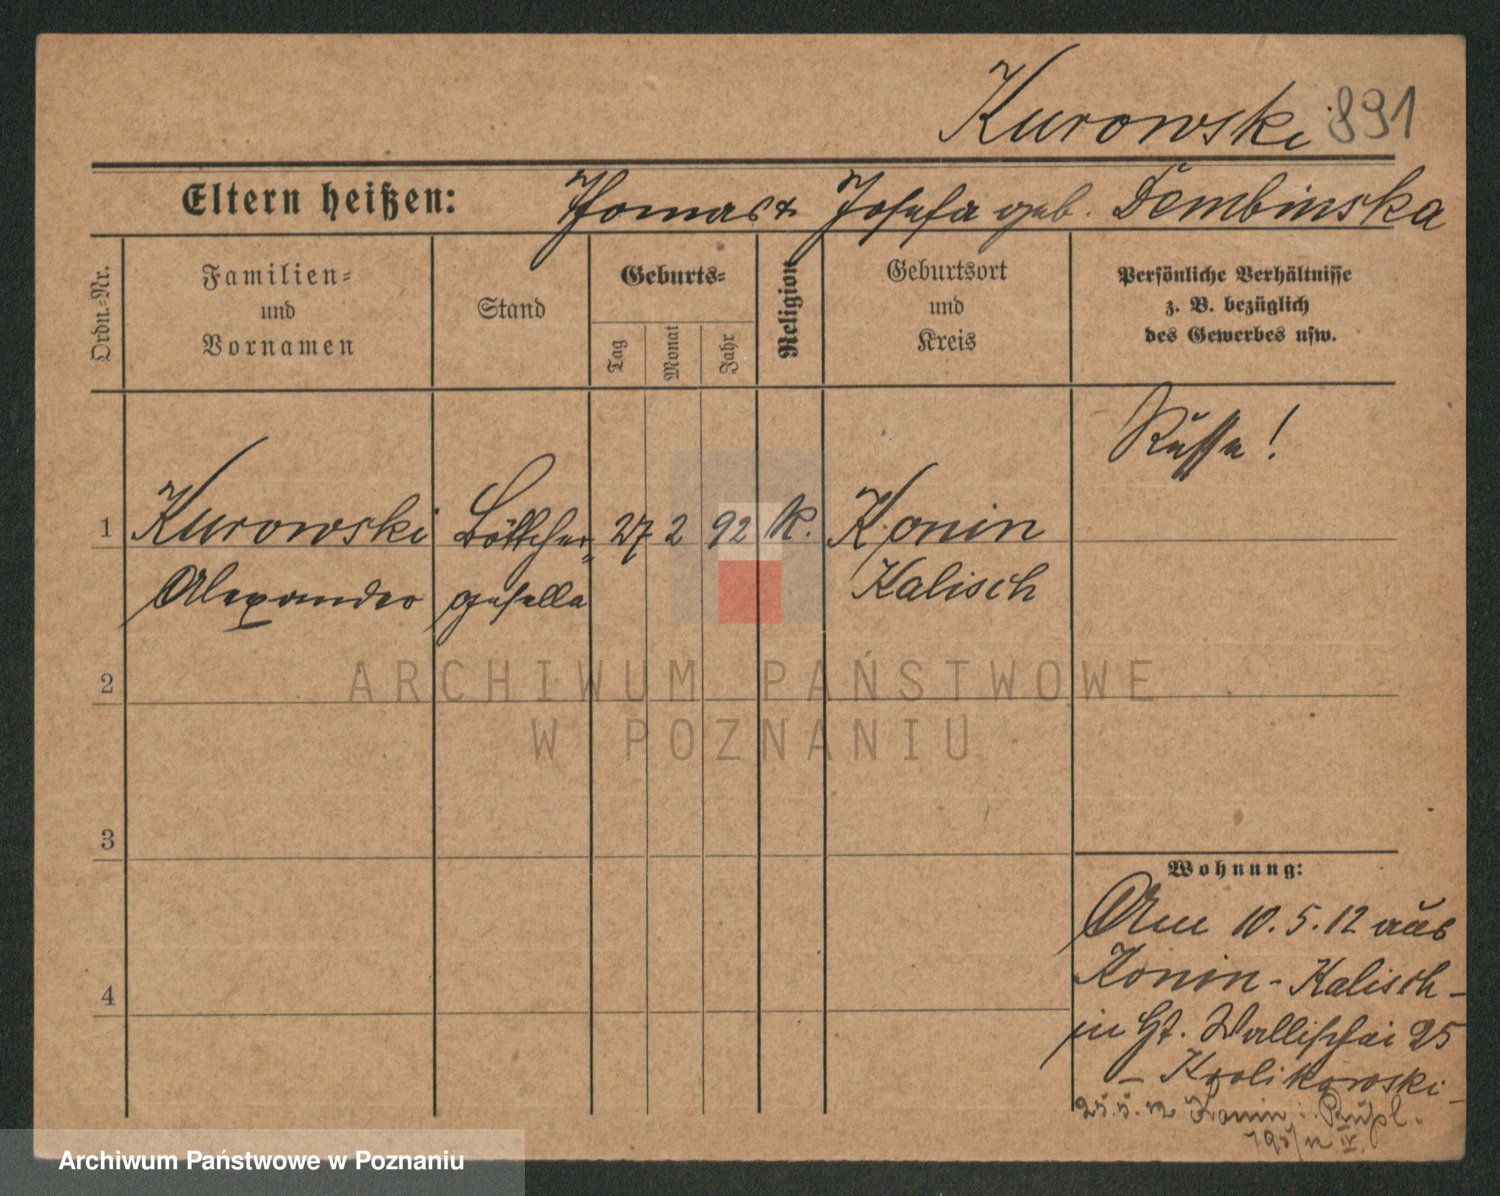 Kurowski 891
Eltern heißen: Thomas & Josefa geb. Dembinska
Ordn.-Nr.
Familien-
und
Vornamen
Stand
Geburts-
Tag
Monat
Jahr
Religion
Geburtsort
und
Kreis
Persönliche Verhältnisse
z. B. bezüglich
des Gewerbes usw.
Russe!
1 Kurowski Böttcher- 27 2 92 K. Konin
Alexander geselle Kalisch
2
3
4
Wohnung:
Am 10.5.12 aus
Konin-Kalisch-
in Gt. Wallischei 25
- Krolikowski-
25.5.12 Konin i. Rußl.
ARCHIWUM PAŃSTWOWE
W POZNANIU
Archiwum Państwowe w Poznaniu